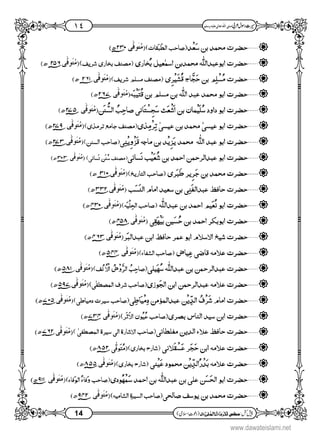 ١٤
حضرت محمد بن سَعْد (صاحب الطَّبَقات) (مُتوَفّٰی ٢٣٠ھ)
حضرت ابوعبداللّٰہ محمد بن اسمٰعیل بُخاری (مصنف بخاری شریف) (مُتوَفّٰی ٢٥٦ھ)
حضرت مُسْلِم بن حَجَّاج قُشَیْری (مصنف مسلم شریف) (مُتوَفّٰی ٢٦١ھ)
حضرت ابو محمد عبد اللّٰہ بن مسلم بن قُتَیْبَہ (مُتوَفّٰی
حضرت ابو داود سُلَیْمان بن اَشْعَث سَجِسْتانی صاحبُ السُّنَن (مُتوَفّٰی ٢٧٥ھ)
حضرت ابو عیسیٰ محمد بن عیسیٰ تِرْمِذی (مصنف جامع ترمذی) (مُتوَفّٰی ٢٧٩ھ)
حضرت ابو عبد اللّٰہ محمد بن یزید بن ماجہ قَزْوِینی (صاحب السنن) (مُتوَفّٰی ٢٧٣ھ)
حضرت ابو عبدالرحمن احمد بن شُعَیْب نَسائی (مصنف سُنَنِ نَسائی) (مُتوَفّٰی ٣٠٣ھ)
حضرت محمد بن جَرِیر طَبَری (صاحب التاریخ) (مُتوَفّٰی ٣١٠ھ)
حضرت حافظ عبدالغنی بن سعید امامُ النَّسَب (مُتوَفّٰی
حضرت ابو نُعَیم احمد بن عبداللّٰہ (صاحب الحِلْیَہ) (مُتوَفّٰی
حضرت ابوبکر احمد بن حُسَین بَیْہَقی (مُتوَفّٰی ٤٥٨ھ)
حضرت شیخ الاسلام ابو عمر حافظ ابن عبدالبَرّ (مُتوَفّٰی ٤٦٣ھ)
حضرت علامہ قاضی عِیاض (صاحب الشفاء) (مُتوَفّٰی ٥٤٤ھ)
حضرت عبدالرحمن بن عبداللّٰہ سُہَیلی (صاحب الرَّوْضُ الْاُنُف) (مُتوَفّٰی ٥٨١ھ)
حضرت علامہ عبدالرحمن ابن الجَوْزی (صاحب شرف المصطفٰی) (مُتوَفّٰی ٥٩٧ھ)
حضرت امام شَرَفُ الدِّین عبدالمؤمن دِمْیاطی (صاحب سیرت دمیاطی) (مُتوَفّٰی ٧٠٥ھ)
حضرت ابن سید الناس بصری (صاحب عُیُونُ الْاَثَر) (مُتوَفّٰی ٧٣٤ھ)
حضرت حافظ علاء الدین مغلطائی (صاحب الاشارۃ الی سیرۃ المصطفٰی) (مُتوَفّٰی ٧٦٢ھ)
حضرت علامہ ابن حَجَر عَسْقَلانی (شارح بخاری) (مُتوَفّٰی ٨٥٢ھ)
حضرت علامہ بَدْرُ الدِّین محمود عَیْنی (شارح بخاری) (مُتوَفّٰی ٨٥٥ھ)
حضرت ابو الحَسَن علی بن عبداللّٰہ بن احمد سَمْہُودی (صاحب وَفَاءُ الوَفَاء) (مُتوَفّٰی ٩١١ھ)
حضرت محمد بن یوسف صالحی (صاحب السیرۃ الشامیہ) (مُتوَفّٰی ٩٤٢ھ)
14
www.dawateislami.net